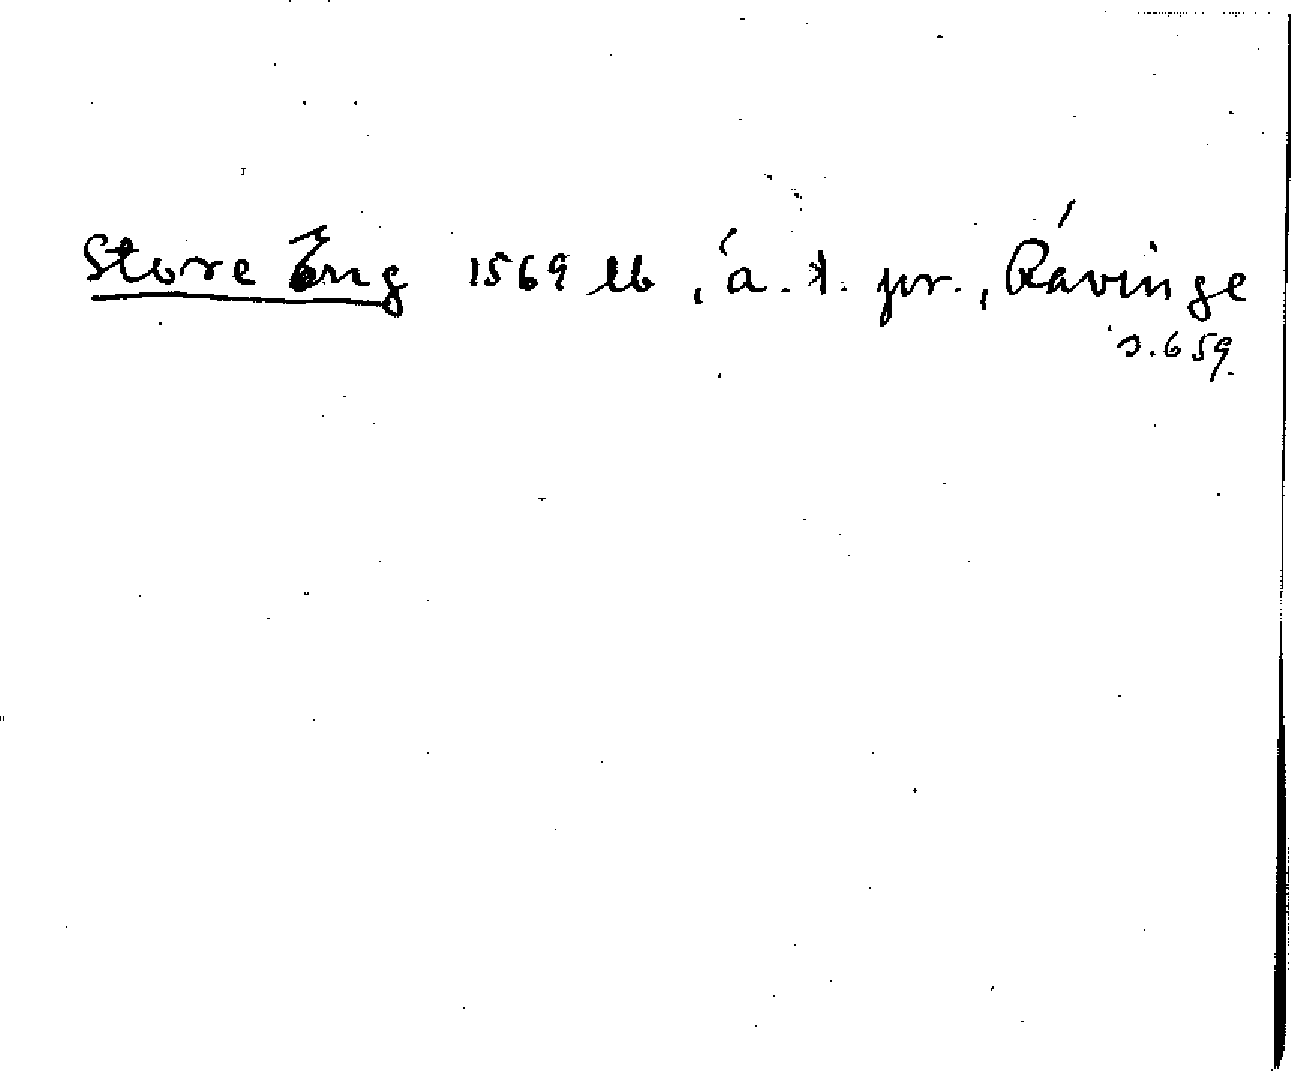 Store Eng 1569 lb, á. t. pr., Rávinge
s. 659.